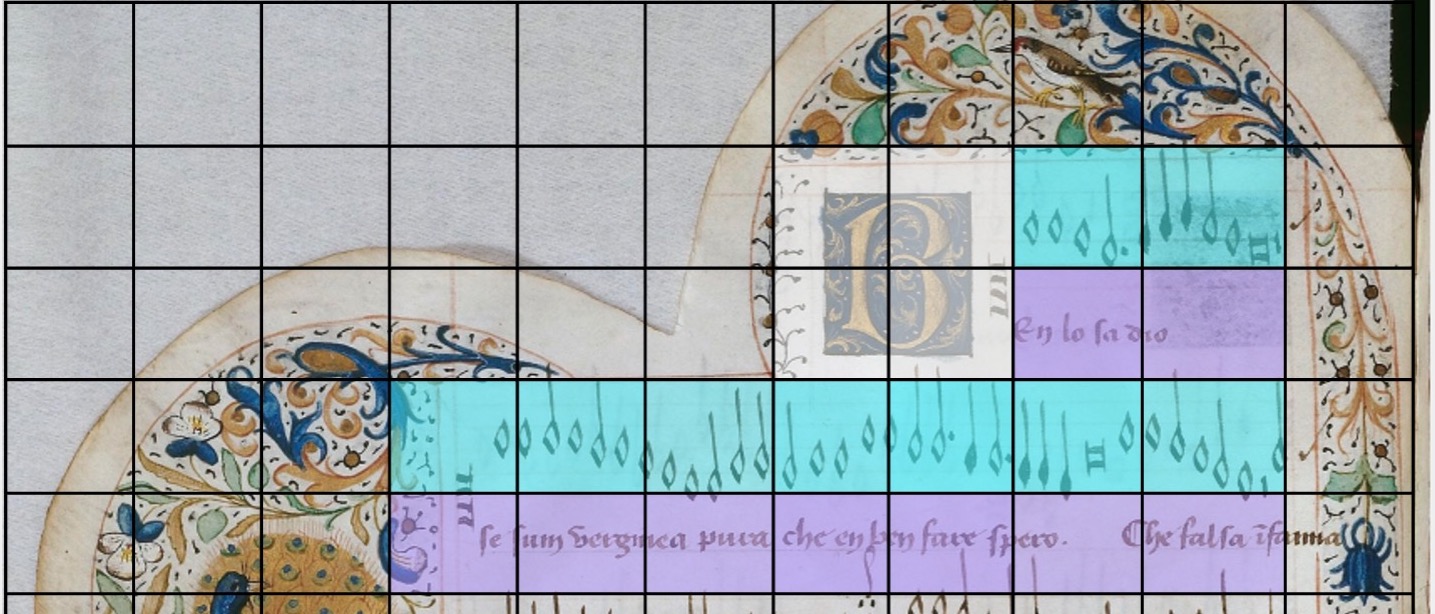 B En lo sa dio
se sum verginea pura che en ben fare spero. Che falsa ĩfamia